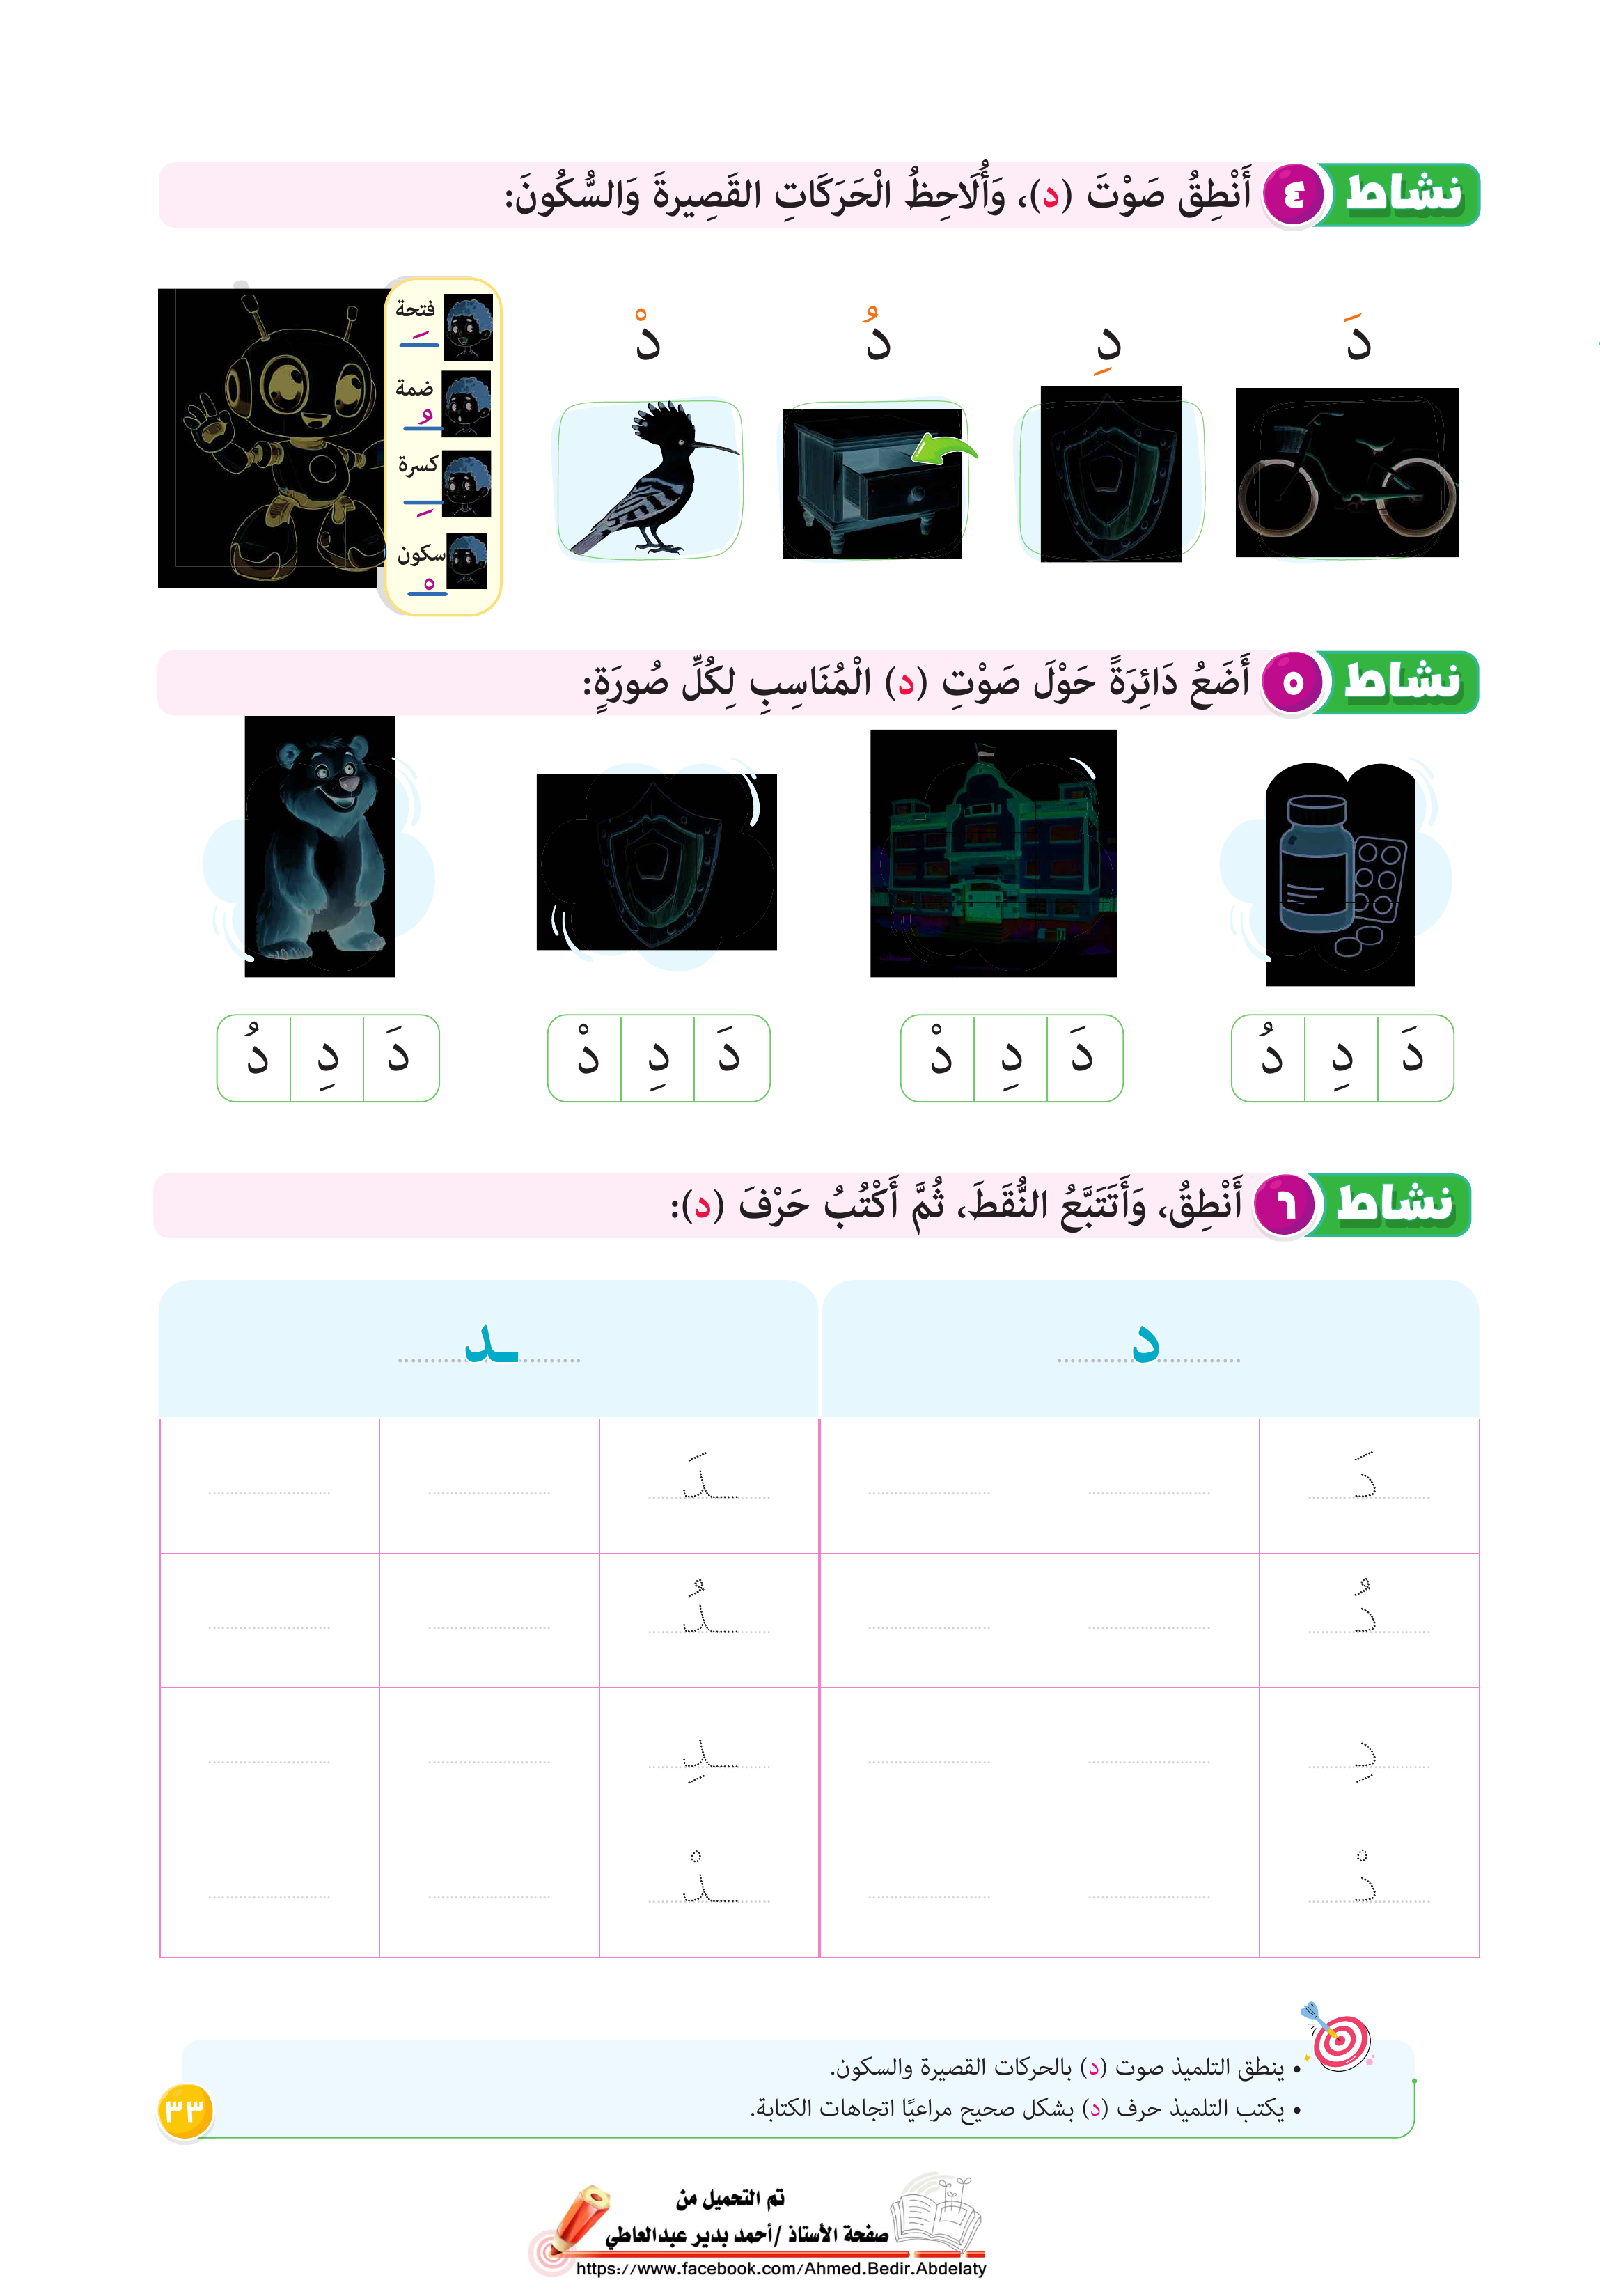 نشاط ٤ أَنْطِقُ صَوْتَ (د)، وَأُلَاحِظُ الْحَرَكَاتِ القَصِيرةَ وَالسُّكُونَ:
دَ دِ دُ دْ
فتحة
ـَ
ضمة
ـُ
كسرة
ـِ
سكون
ـْ
نشاط ٥ أَضَعُ دَائِرَةً حَوْلَ صَوْتِ (د) الْمُنَاسِبِ لِكُلِّ صُورَةٍ:
دَ دِ دُ دَ دِ دْ دَ دِ دْ دَ دِ دُ
نشاط ٦ أَنْطِقُ، وَأَتَتَبَّعُ النُّقَطَ، ثُمَّ أَكْتُبُ حَرْفَ (د):
د ـد
دَ ـدَ
دُ ـدُ
دِ ـدِ
دْ ـدْ
• ينطق التلميذ صوت (د) بالحركات القصيرة والسكون.
• يكتب التلميذ حرف (د) بشكل صحيح مراعيًا اتجاهات الكتابة.
٣٣
تم التحميل من
صفحة الأستاذ /أحمد بدير عبدالعاطي
https://www.facebook.com/Ahmed.Bedir.Abdelaty